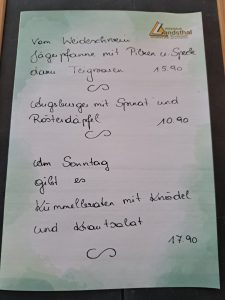 Landsthal
Vom Weideschwein
Jägerpfanne mit Pilzen u. Speck
dazu Teigwaren 15.90
Augsburger mit Spinat und
Rösterdäpfel 10.90
Am Sonntag
gibt es
Kümmelbraten mit Knödel
und Krautsalat
17.90